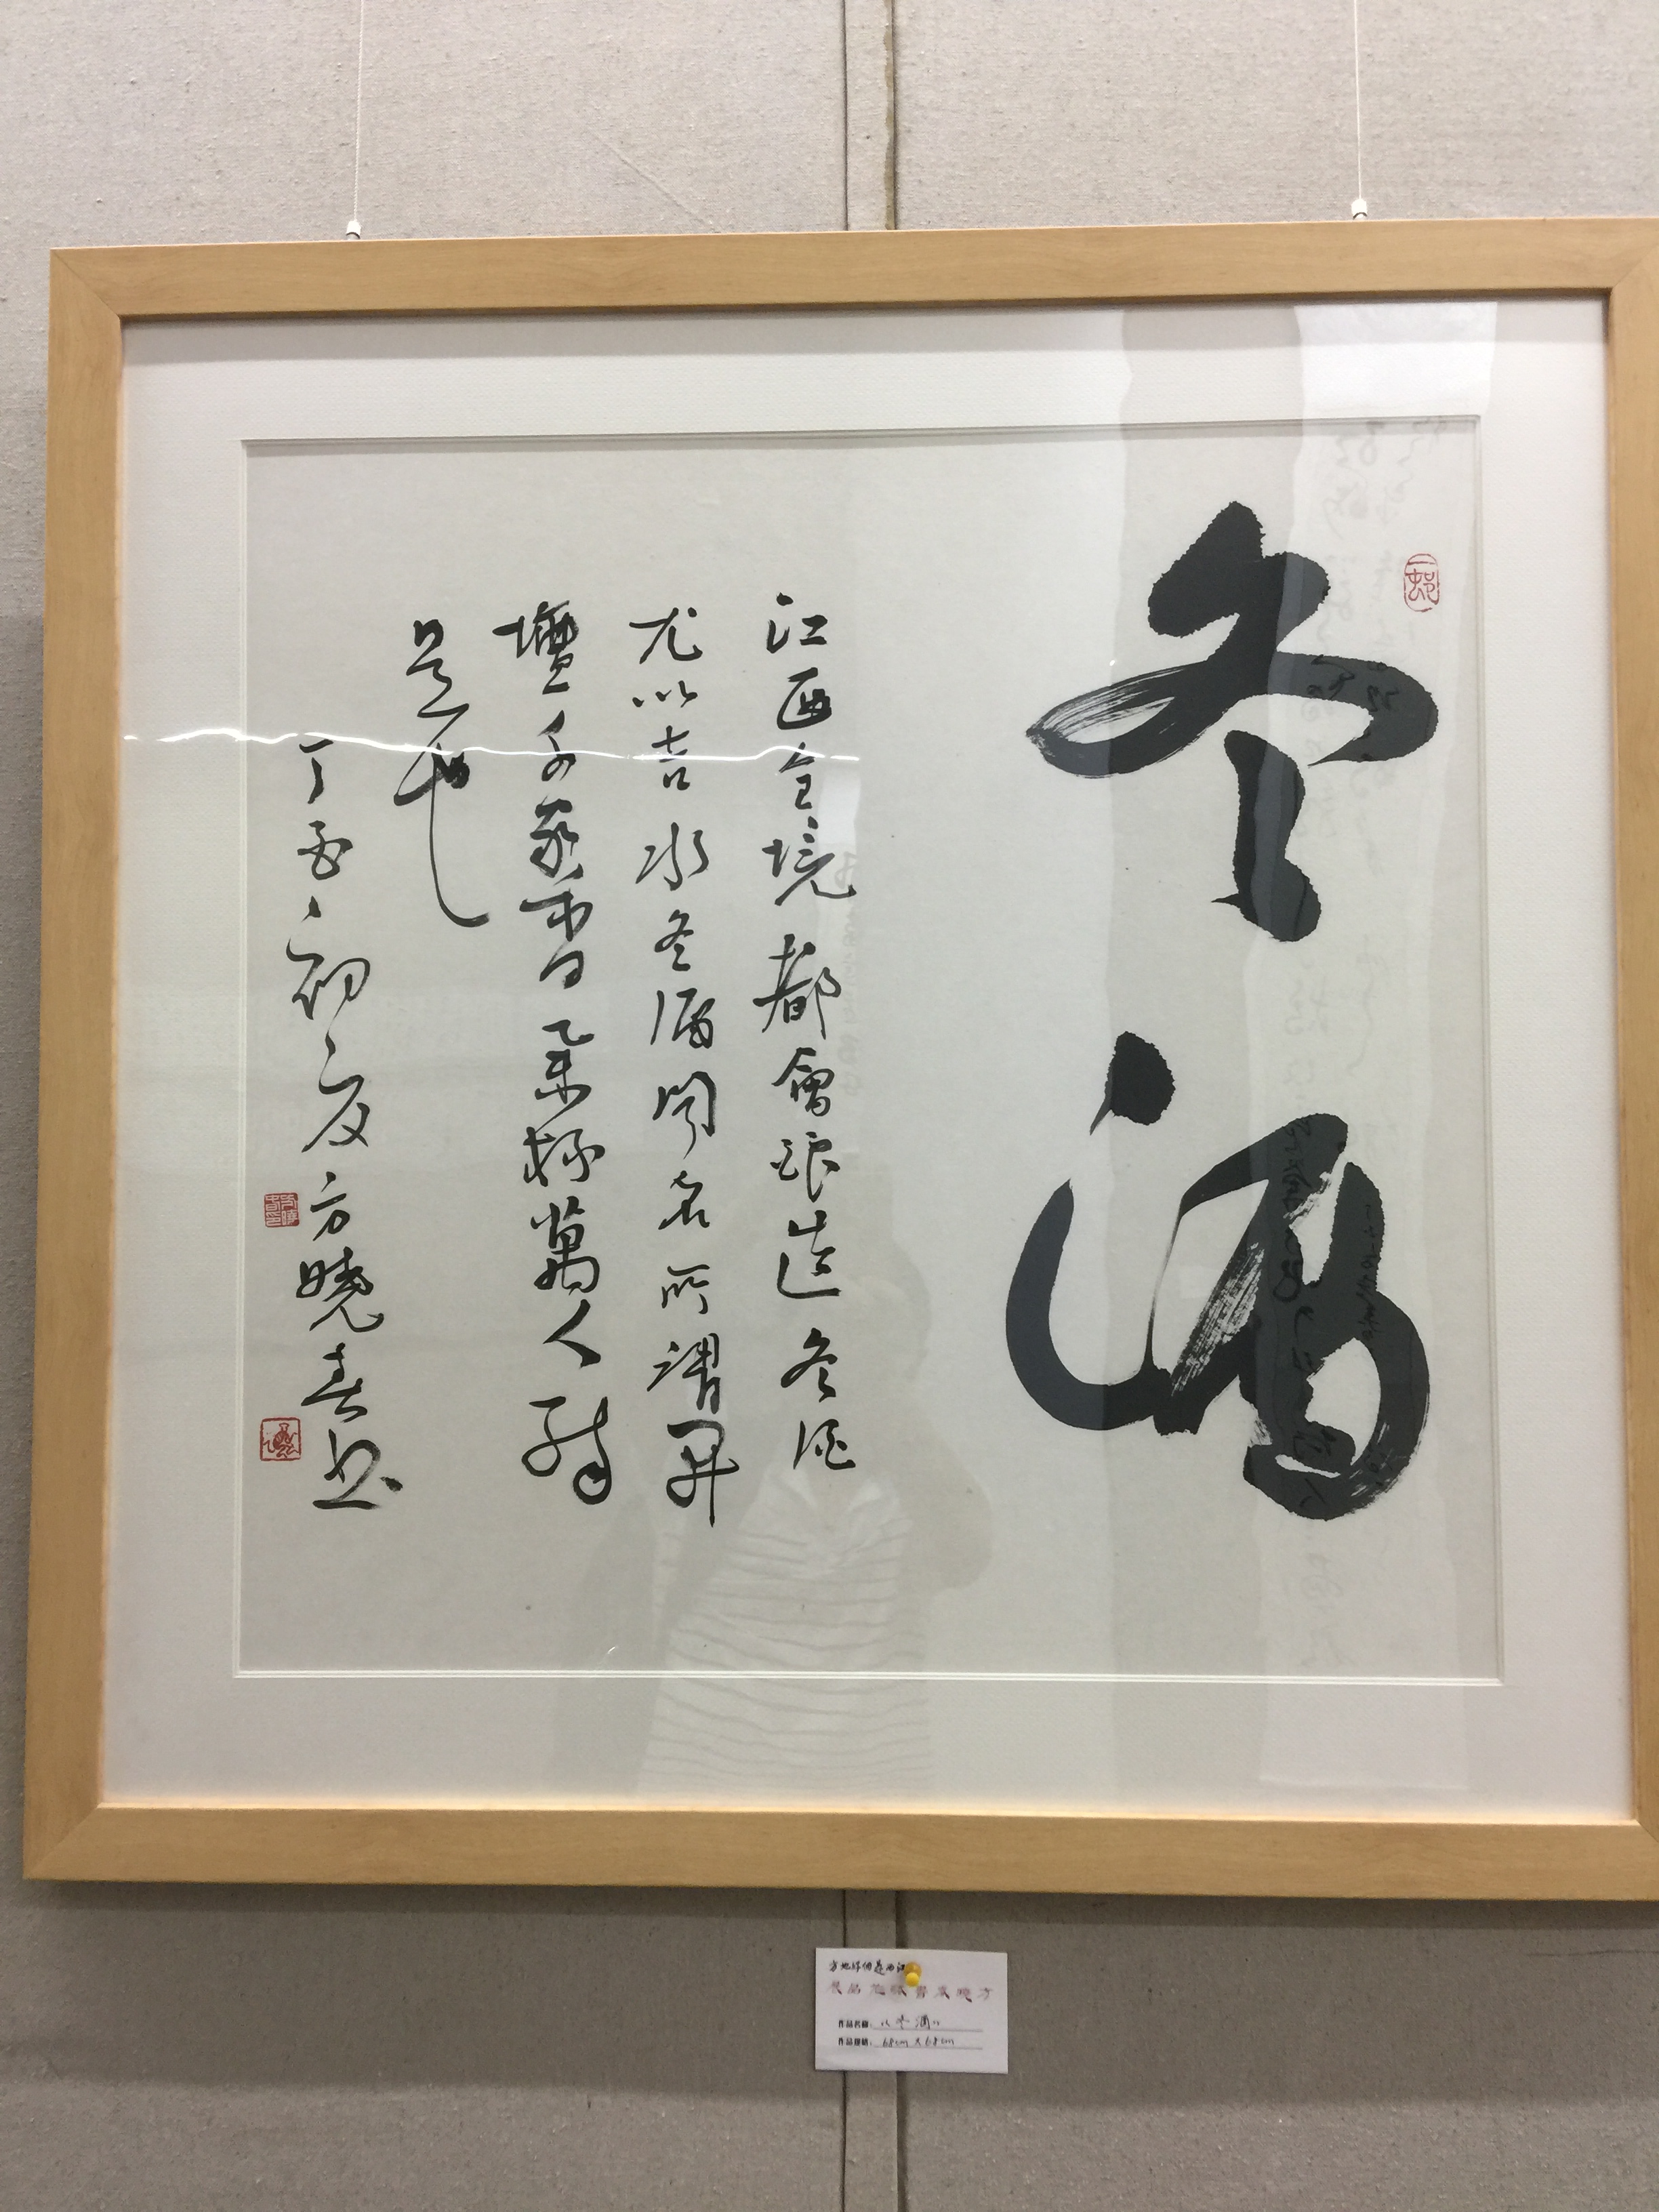 冬酒
江西全境都會釀造冬酒
尤以吉水冬酒聞名所謂開
壇千家香舉杯萬人醉
是也
丁酉初夏方曉春書
作品名稱：“冬酒”
作品規格：68cm×68cm